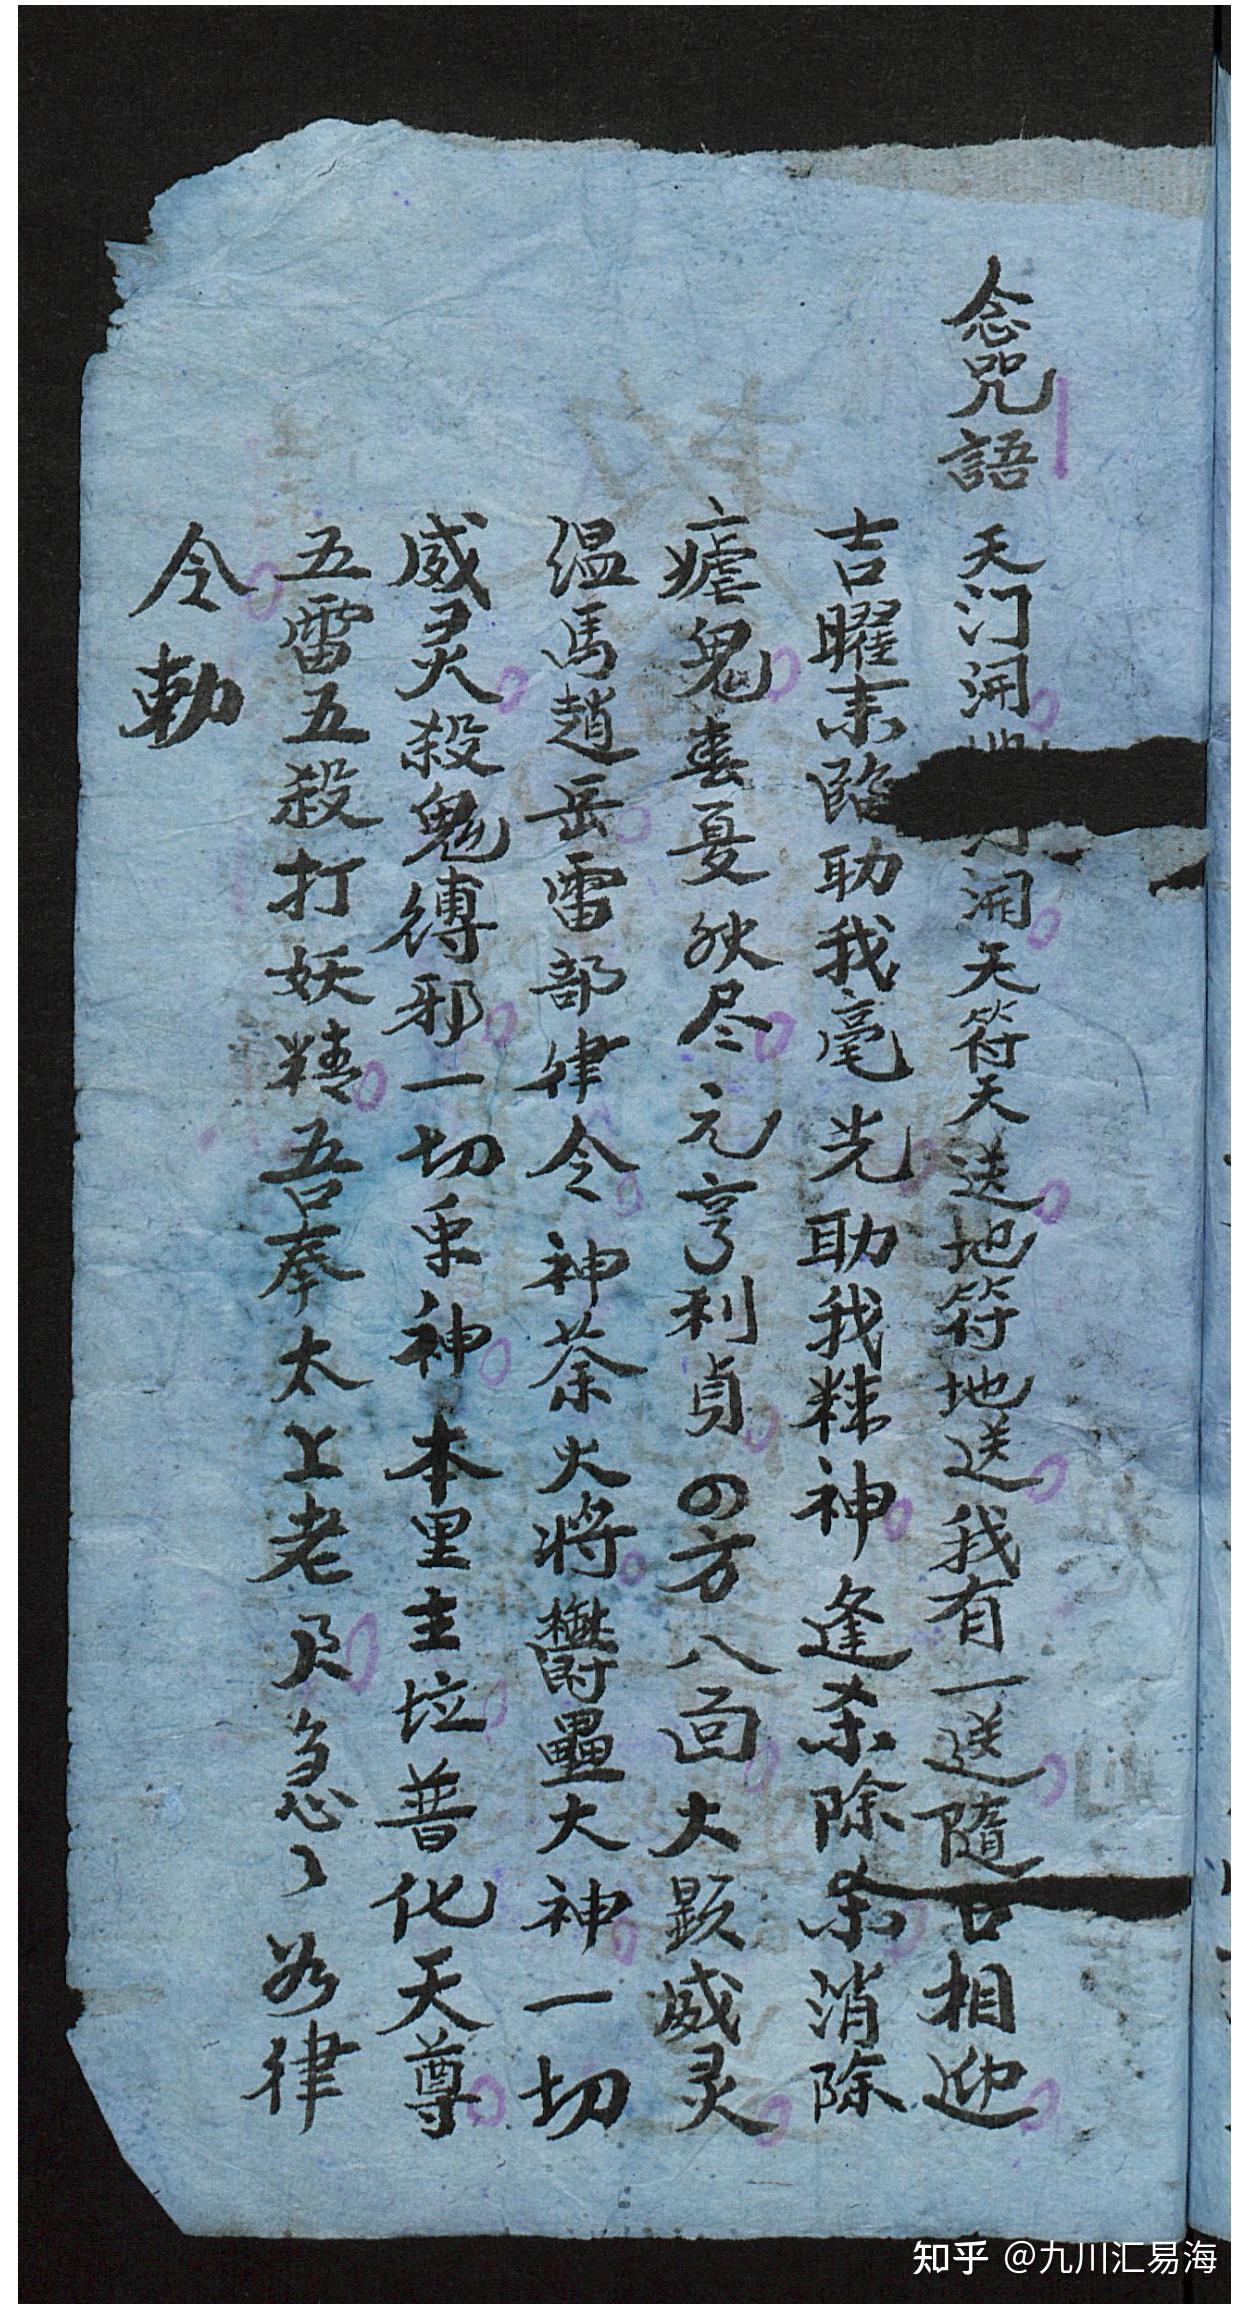 念咒語 天门開 開天符天送地符地送我有一送隨 相迎
吉曜来臨助我毫光助我精神逢杀除杀消除
瘧鬼春夏秋尽元亨利貞の方八面大顕威灵
温馬趙岳雷部律令神荼火将鬱壘大神一切
威灵殺鬼縛邪一切 神本里主垃普化天尊
五雷五殺打妖精吾奉太上老 急〻 律
令勅
知乎 @九川汇易海